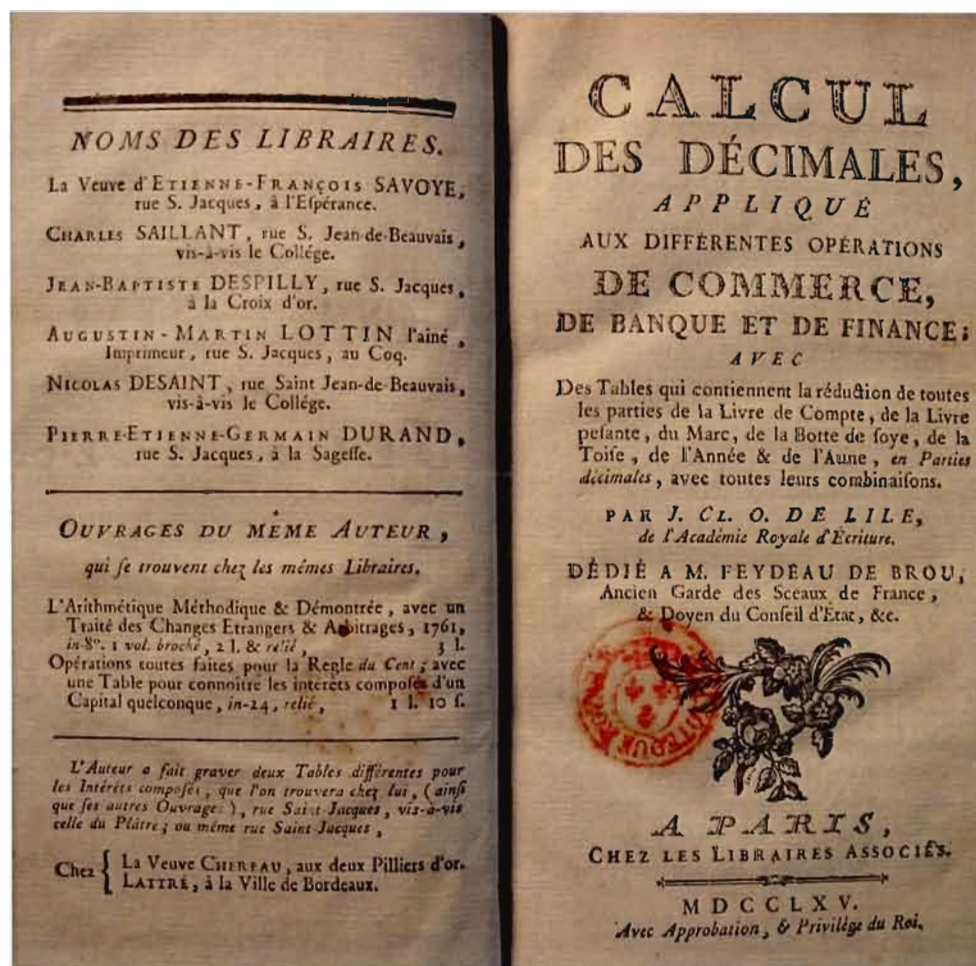 NOMS DES LIBRAIRES.
La Veuve d'ETIENNE-FRANÇOIS SAVOYE,
rue S. Jacques, à l'Eſpérance.
CHARLES SAILLANT, rue S. Jean-de-Beauvais,
vis-à-vis le Collége.
JEAN-BAPTISTE DESPILLY, rue S. Jacques,
à la Croix d'or.
AUGUSTIN-MARTIN LOTTIN l'ainé,
Imprimeur, rue S. Jacques, au Coq.
NICOLAS DESAINT, rue Saint Jean-de-Beauvais,
vis-à-vis le Collége.
PIERRE-ETIENNE-GERMAIN DURAND,
rue S. Jacques, à la Sageſſe.
OUVRAGES DU MÊME AUTEUR,
qui ſe trouvent chez les mêmes Libraires.
L'Arithmétique Méthodique & Démontrée, avec un
Traité des Changes Etrangers & Arbitrages, 1761,
in-8°. 1 vol. broché, 2 l. & relié, 3 l.
Opérations toutes faites pour la Regle du Cent; avec
une Table pour connoître les intérêts compoſés d'un
Capital quelconque, in-24, relié, 1 l. 10 ſ.
L'Auteur a fait graver deux Tables différentes pour
les Intérêts compoſés, que l'on trouvera chez lui, (ainſi
que ſes autres Ouvrages), rue Saint Jacques, vis-à-vis
celle du Plâtre; ou même rue Saint Jacques,
Chez { La Veuve CHEREAU, aux deux Pilliers d'or.
LATTRÉ, à la Ville de Bordeaux.
CALCUL
DES DÉCIMALES,
APPLIQUÉ
AUX DIFFÉRENTES OPÉRATIONS
DE COMMERCE,
DE BANQUE ET DE FINANCE;
AVEC
Des Tables qui contiennent la réduction de toutes
les parties de la Livre de Compte, de la Livre
peſante, du Marc, de la Botte de ſoye, de la
Toiſe, de l'Année & de l'Aune, en Parties
décimales, avec toutes leurs combinaiſons.
PAR J. CL. O. DE LILE,
de l'Académie Royale d'Écriture.
DÉDIÉ A M. FEYDEAU DE BROU,
Ancien Garde des Sceaux de France,
& Doyen du Conſeil d'État, &c.
A PARIS,
CHEZ LES LIBRAIRES ASSOCIÉS.
MDCCLXV.
Avec Approbation, & Privilége du Roi.